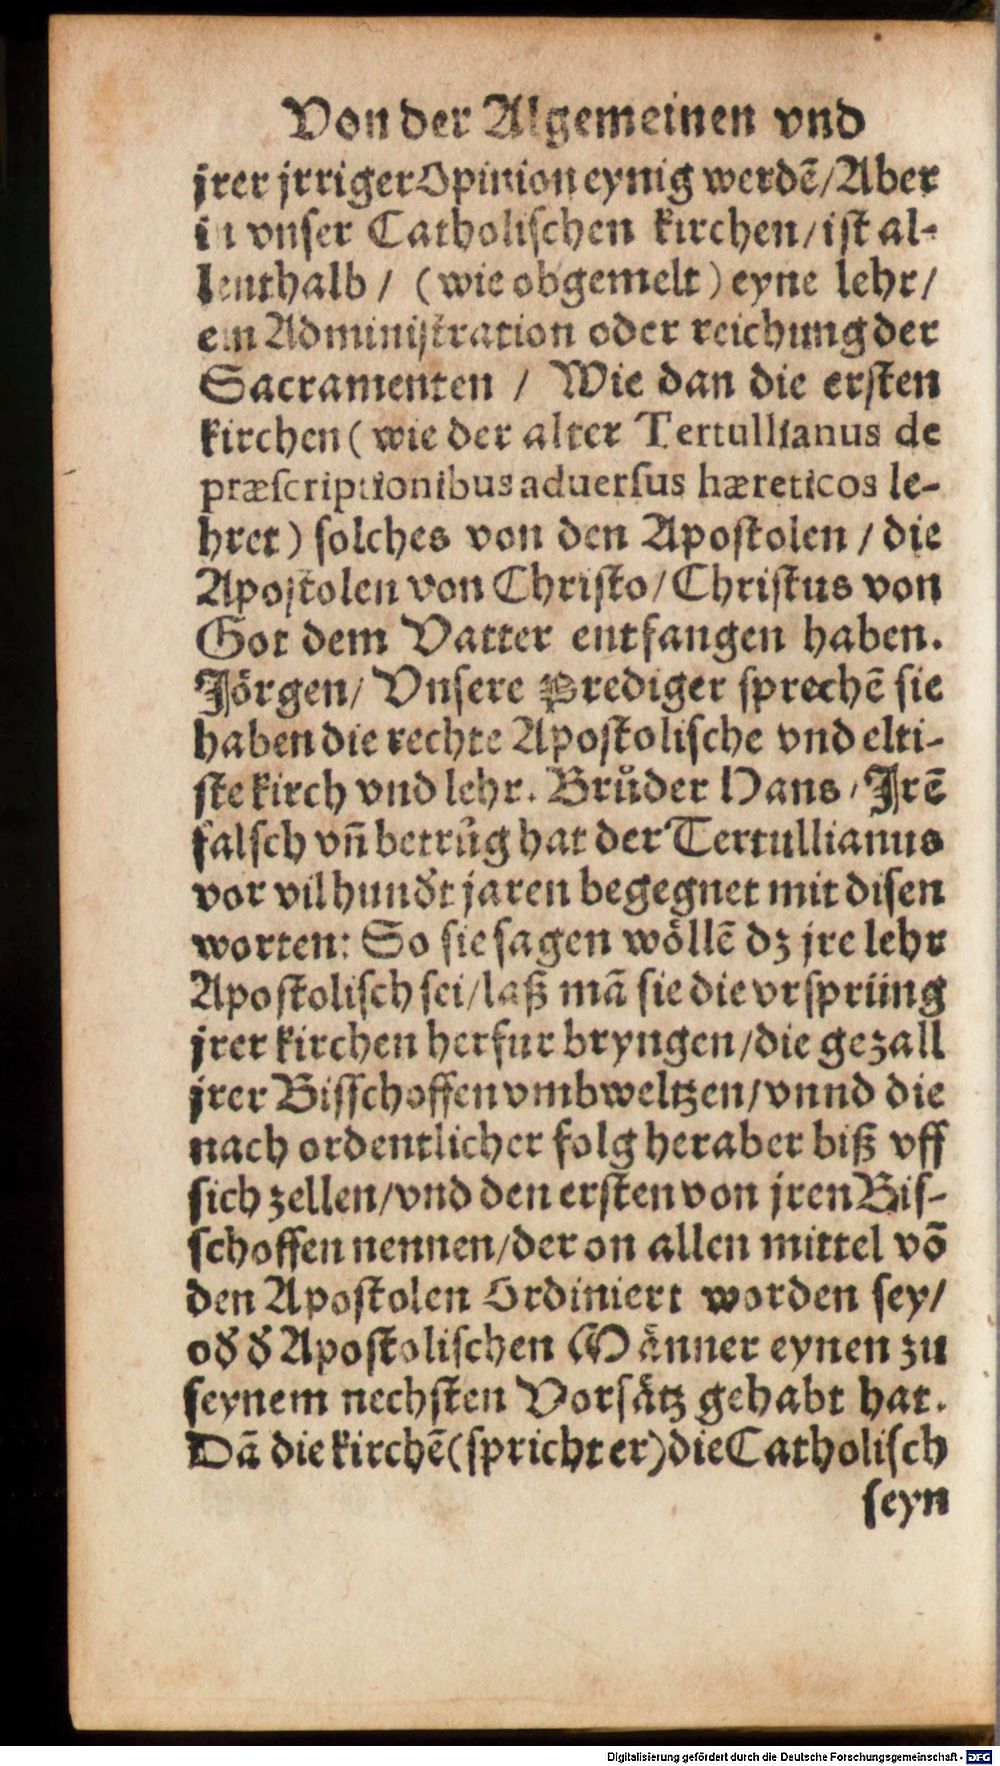 Von der Algemeinen vnd
jrer jrriger Opinion eynig werdē/Aber
in vnser Catholischen kirchen/ist al-
lenthalb / (wie obgemelt) eyne lehr/
ein Administration oder reichung der
Sacramenten / Wie dan die ersten
kirchen (wie der alter Tertullianus de
præscriptionibus aduersus hæreticos le-
hret) solches von den Apostolen / die
Apostolen von Christo/Christus von
Got dem Vatter entfangen haben.
Jörgen/ Vnsere Prediger sprechē sie
haben die rechte Apostolische vnd elti-
ste kirch vnd lehr. Brůder Hans/Jrē
falsch vn̄ betrůg hat der Tertullianus
vor vil hundt jaren begegnet mit disen
worten: So sie sagen wöllē dz jre lehr
Apostolisch sei/laß mā sie die vrsprüng
jrer kirchen herfur bryngen/die gezall
jrer Bisschoffen vmbweltzen/vnnd die
nach ordentlicher folg heraber biß vff
sich zellen/vnd den ersten von jren Bis-
schoffen nennen/der on allen mittel vō
den Apostolen Ordiniert worden sey/
od d Apostolischen Männer eynen zu
seynem nechsten Vorsätz gehabt hat.
Dā die kirchē(spricht er)die Catholisch
seyn
Digitalisierung gefördert durch die Deutsche Forschungsgemeinschaft - DFG